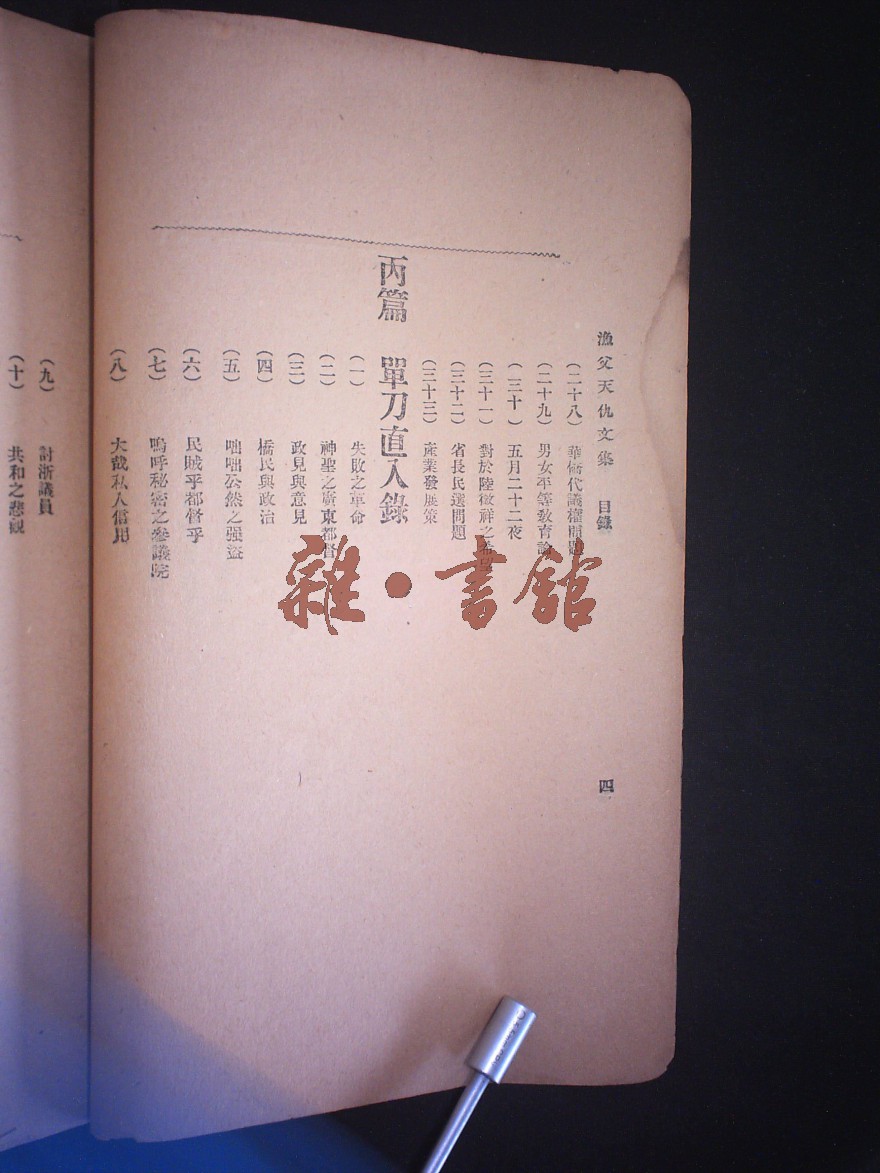 漁父天仇文集 目錄 四
(二十八) 華僑代議權問題
(二十九) 男女平等教育論
(三十) 五月二十二夜
(三十一) 對於陸徵祥之希望
(三十二) 省長民選問題
(三十三) 產業發展策
丙篇 單刀直入錄
(一) 失敗之革命
(二) 神聖之廣東都督
(三) 政見與意見
(四) 僑民與政治
(五) 咄咄公然之强盜
(六) 民賊乎都督乎
(七) 嗚呼秘密之參議院
(八) 大哉私人信用
(九) 討浙議員
(十) 共和之悲觀
雜·書館